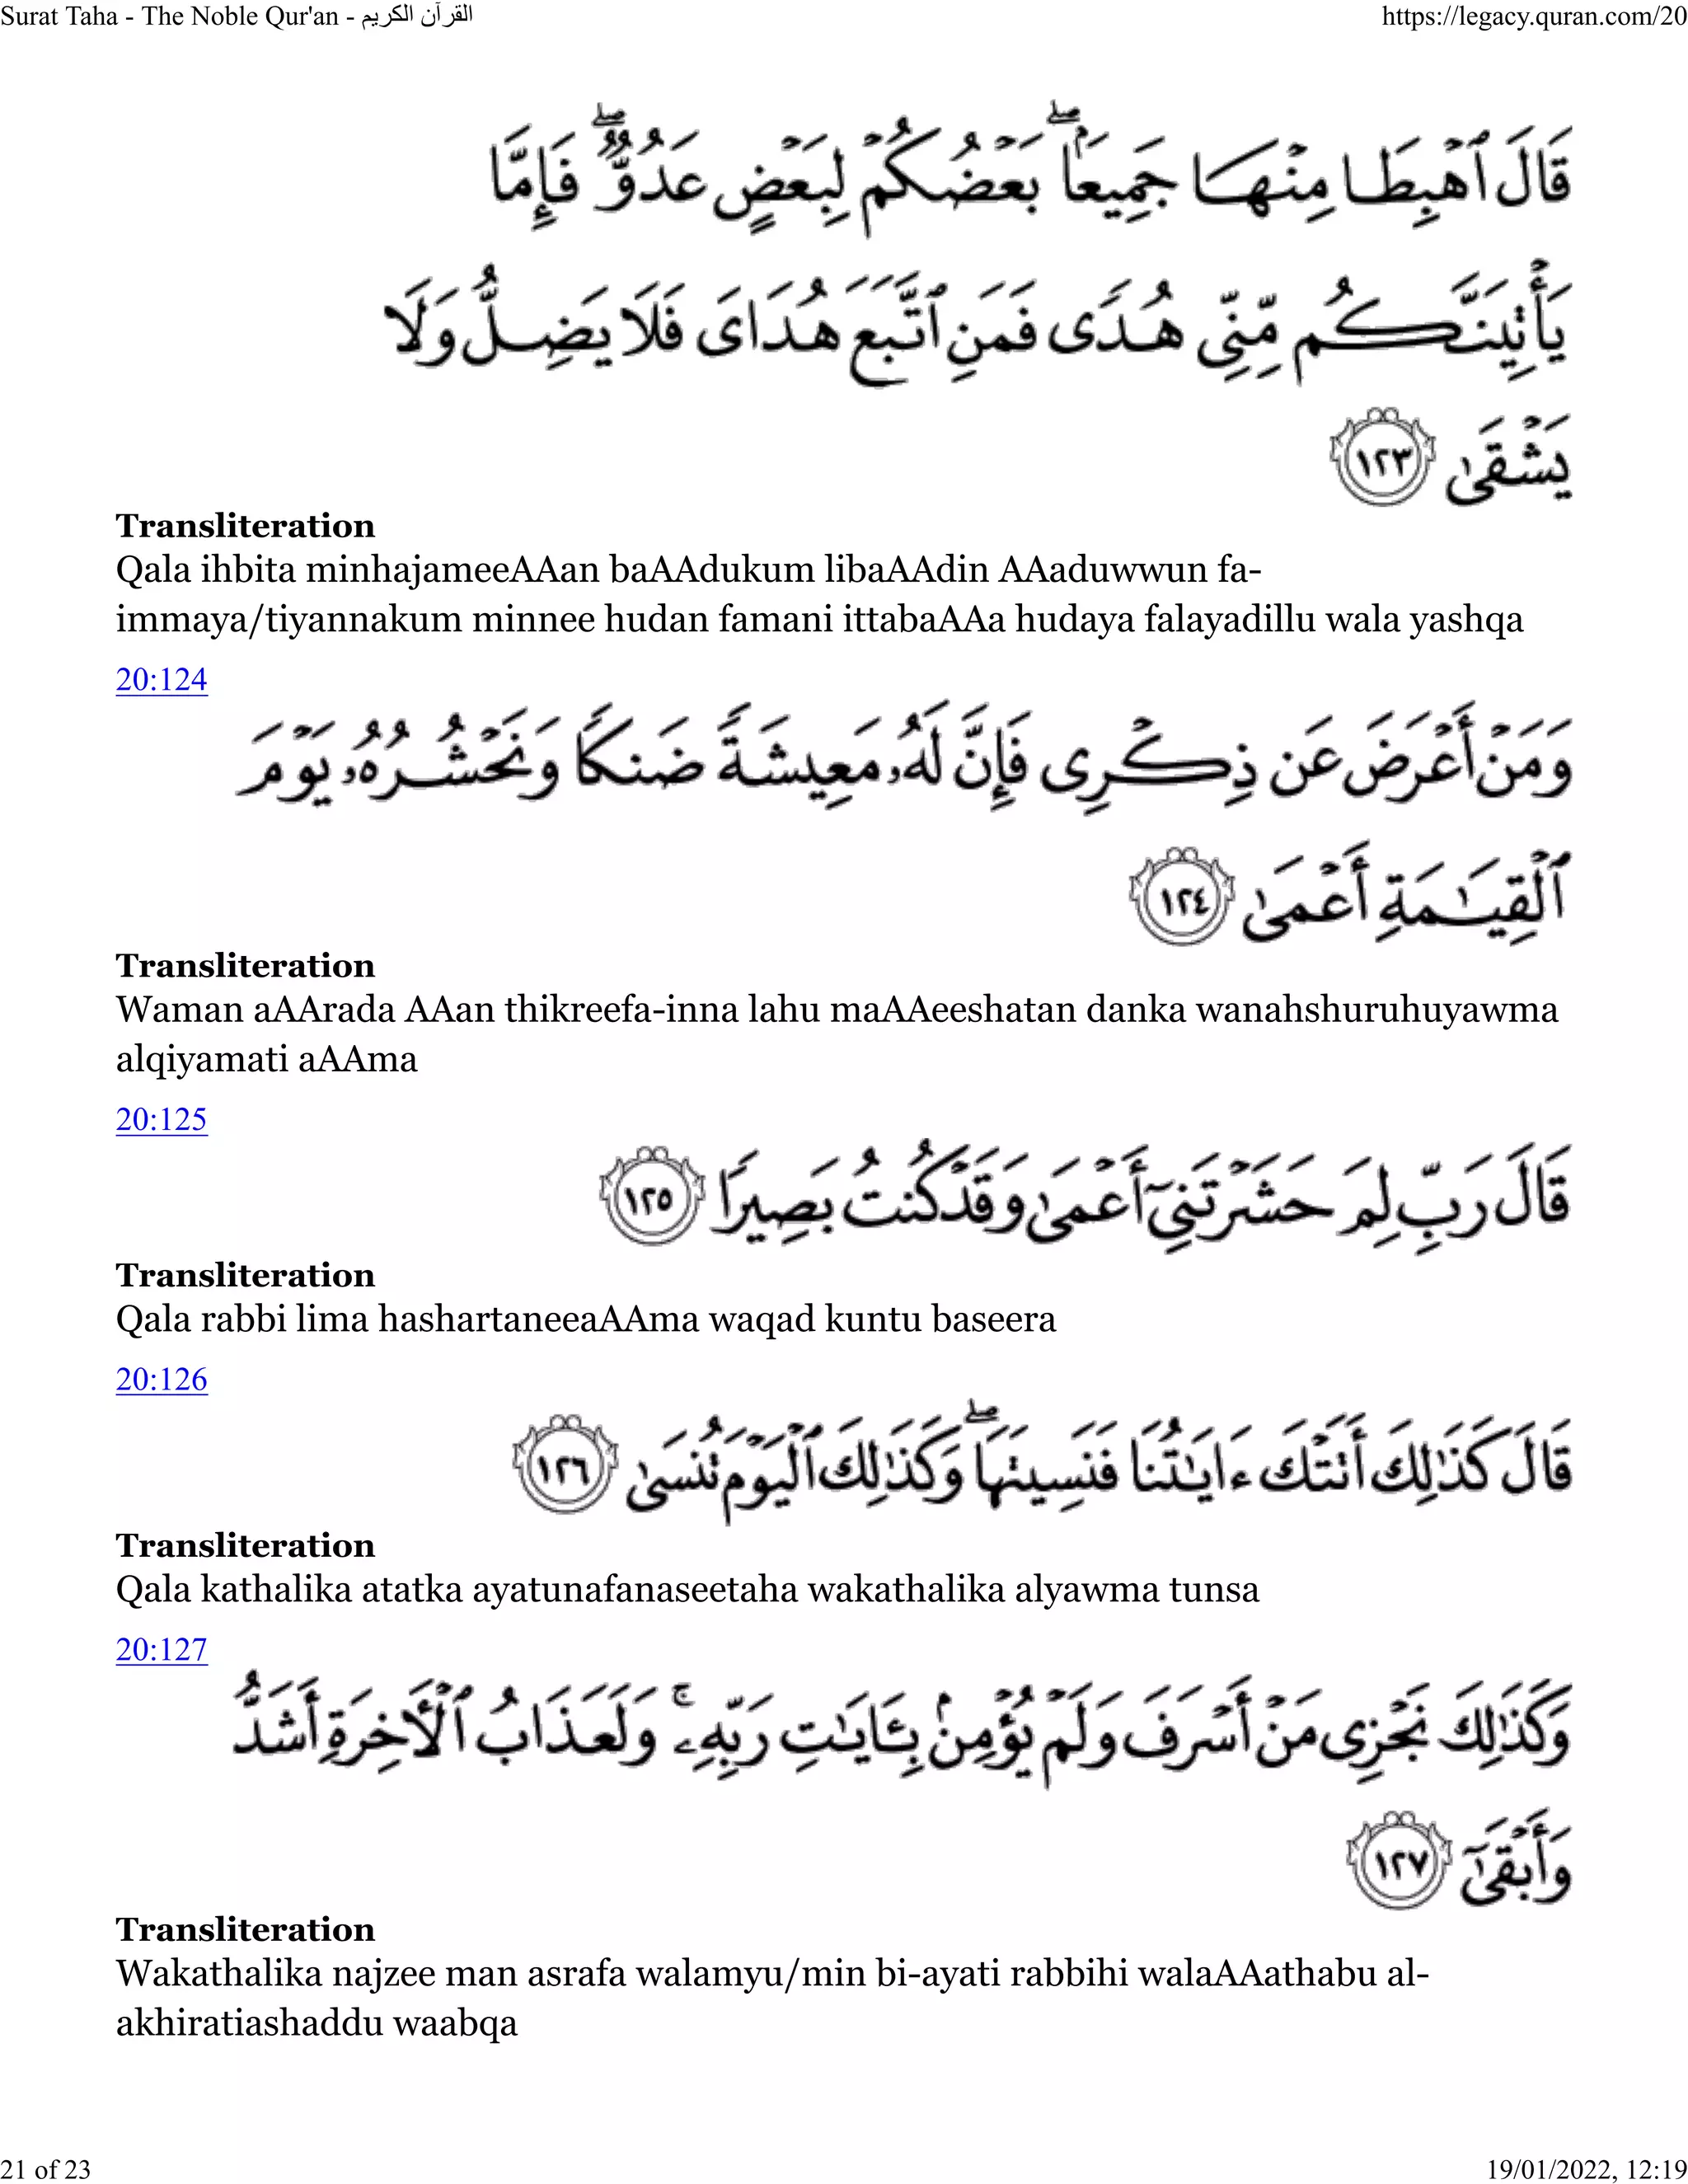 Surat Taha - The Noble Qur'an - القرآن الكريم
https://legacy.quran.com/20
قَالَ ٱهْبِطَا مِنْهَا جَمِيعًۢا ۖ بَعْضُكُمْ لِبَعْضٍ عَدُوٌّ ۖ فَإِمَّا
يَأْتِيَنَّكُم مِّنِّى هُدًى فَمَنِ ٱتَّبَعَ هُدَاىَ فَلَا يَضِلُّ وَلَا
يَشْقَىٰ ١٢٣
Transliteration
Qala ihbita minhajameeAAan baAAdukum libaAAdin AAaduwwun fa-
immaya/tiyannakum minnee hudan famani ittabaAAa hudaya falayadillu wala yashqa
20:124
وَمَنْ أَعْرَضَ عَن ذِكْرِى فَإِنَّ لَهُۥ مَعِيشَةً ضَنكًا وَنَحْشُرُهُۥ يَوْمَ
ٱلْقِيَـٰمَةِ أَعْمَىٰ ١٢٤
Transliteration
Waman aAArada AAan thikreefa-inna lahu maAAeeshatan danka wanahshuruhuyawma
alqiyamati aAAma
20:125
قَالَ رَبِّ لِمَ حَشَرْتَنِىٓ أَعْمَىٰ وَقَدْ كُنتُ بَصِيرًا ١٢٥
Transliteration
Qala rabbi lima hashartaneeaAAma waqad kuntu baseera
20:126
قَالَ كَذَٰلِكَ أَتَتْكَ ءَايَـٰتُنَا فَنَسِيتَهَا ۖ وَكَذَٰلِكَ ٱلْيَوْمَ تُنسَىٰ ١٢٦
Transliteration
Qala kathalika atatka ayatunafanaseetaha wakathalika alyawma tunsa
20:127
وَكَذَٰلِكَ نَجْزِى مَنْ أَسْرَفَ وَلَمْ يُؤْمِنۢ بِـَٔايَـٰتِ رَبِّهِۦ ۚ وَلَعَذَابُ ٱلْـَٔاخِرَةِ أَشَدُّ
وَأَبْقَىٰٓ ١٢٧
Transliteration
Wakathalika najzee man asrafa walamyu/min bi-ayati rabbihi walaAAathabu al-
akhiratiashaddu waabqa
21 of 23
19/01/2022, 12:19